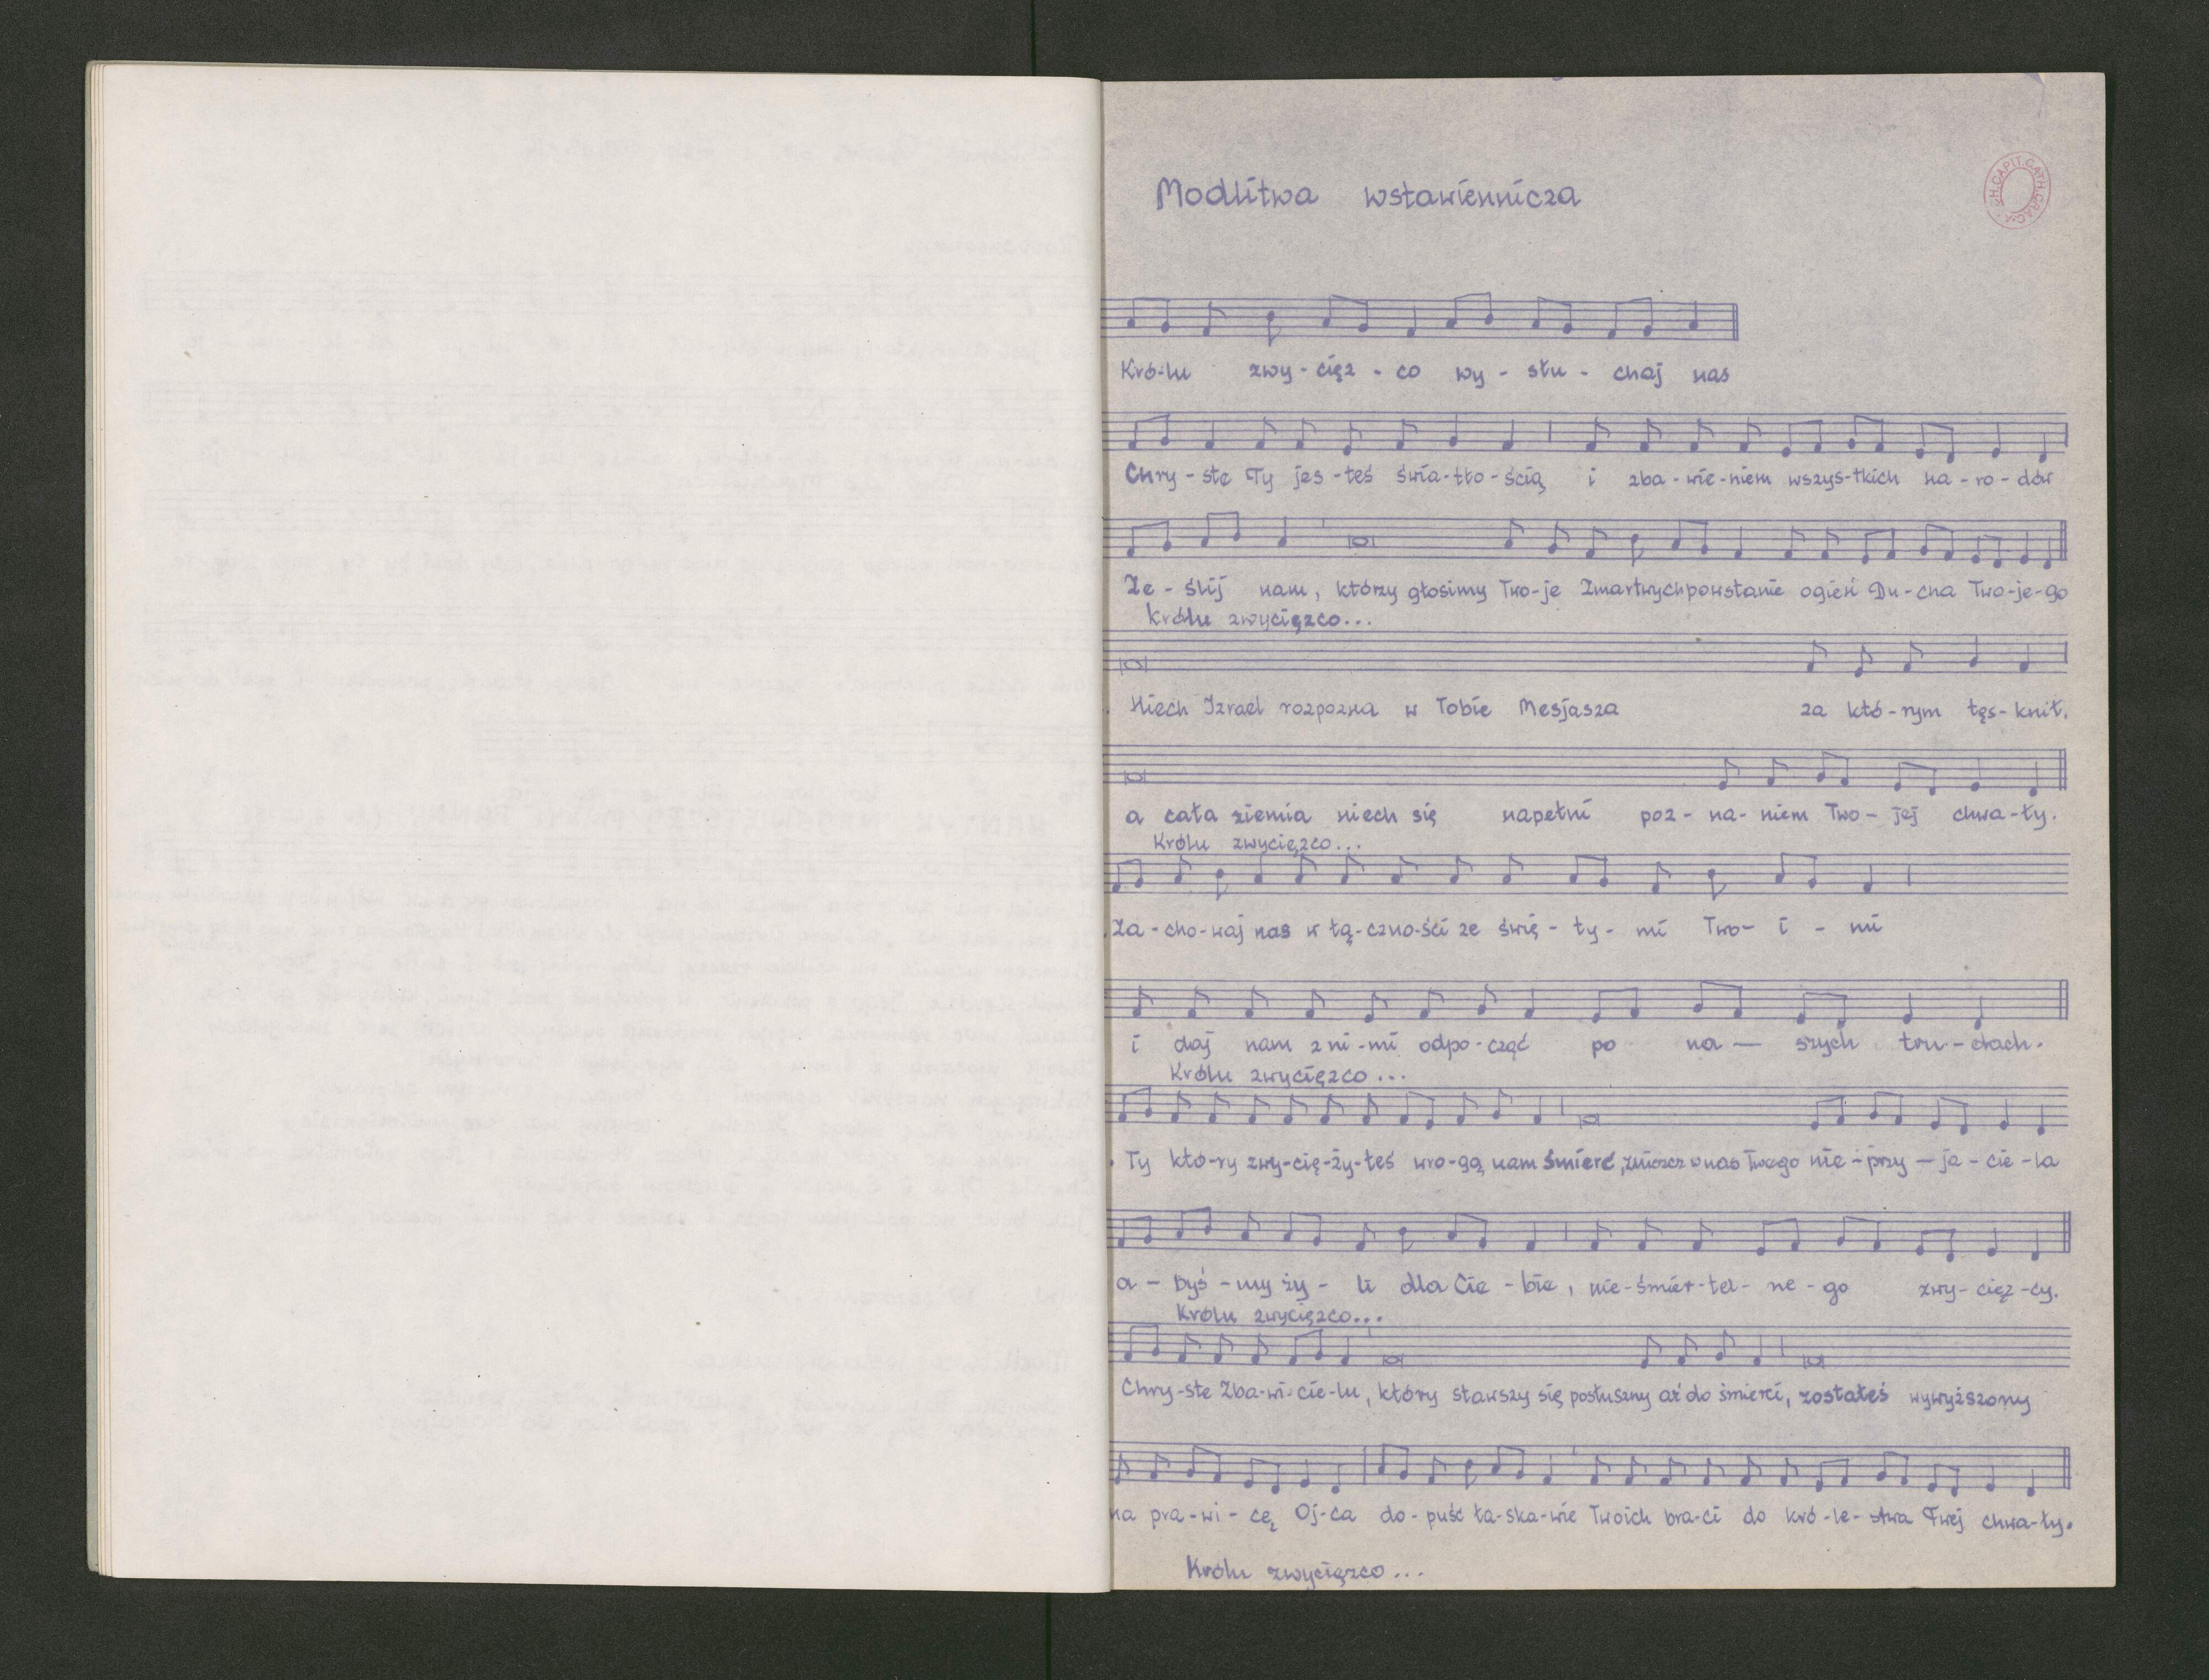 Modlitwa wstawiennicza
ARCH.CAPIT.CATH.CRAC.
Kró-lu zwy-cięz-co wy-słu-chaj nas
Chry-ste Ty jes-teś świa-tło-ścią i zba-wie-niem wszys-tkich na-ro-dów
Ze-ślij nam, którzy głosimy Two-je Zmartwychpowstanie ogień Du-cha Two-je-go
Królu zwycięzco...
Niech Izrael rozpozna w Tobie Mesjasza za któ-rym tęs-knił.
a cała ziemia niech się napełni poz-na-niem Two-jej chwa-ły.
Królu zwycięzco...
Za-cho-waj nas w łą-czno-ści ze świę-ty-mi Two-i-mi
i daj nam z ni-mi odpo-cząć po na-szych tru-dach.
Królu zwycięzco...
Ty któ-ry zwy-cię-ży-łeś wro-gą nam śmierć, zniszcz w nas Twego nie-przy-ja-cie-la
a-byś-my ży-li dla Cie-bie, nie-śmier-tel-ne-go zwy-cięz-cy.
Królu zwycięzco...
Chry-ste Zba-wi-cie-lu, który stawszy się posłuszny aż do śmierci, zostałeś wywyższony
na pra-wi-cę Oj-ca do-puść ła-ska-wie Twoich bra-ci do kró-le-stwa Twej chwa-ły.
Królu zwycięzco...